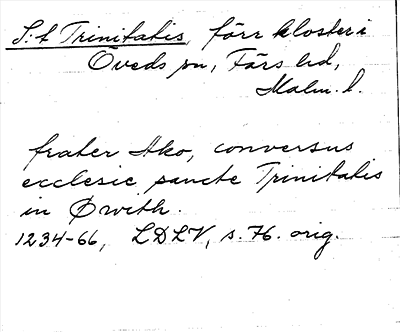 S:t Trinitatis, förr kloster i
Öveds sn, Färs hd,
Malm. l.
frater Ako, conversus
ecclesie sancte Trinitatis
in Øwith.
1234-66, LDLV, s. 76. orig.